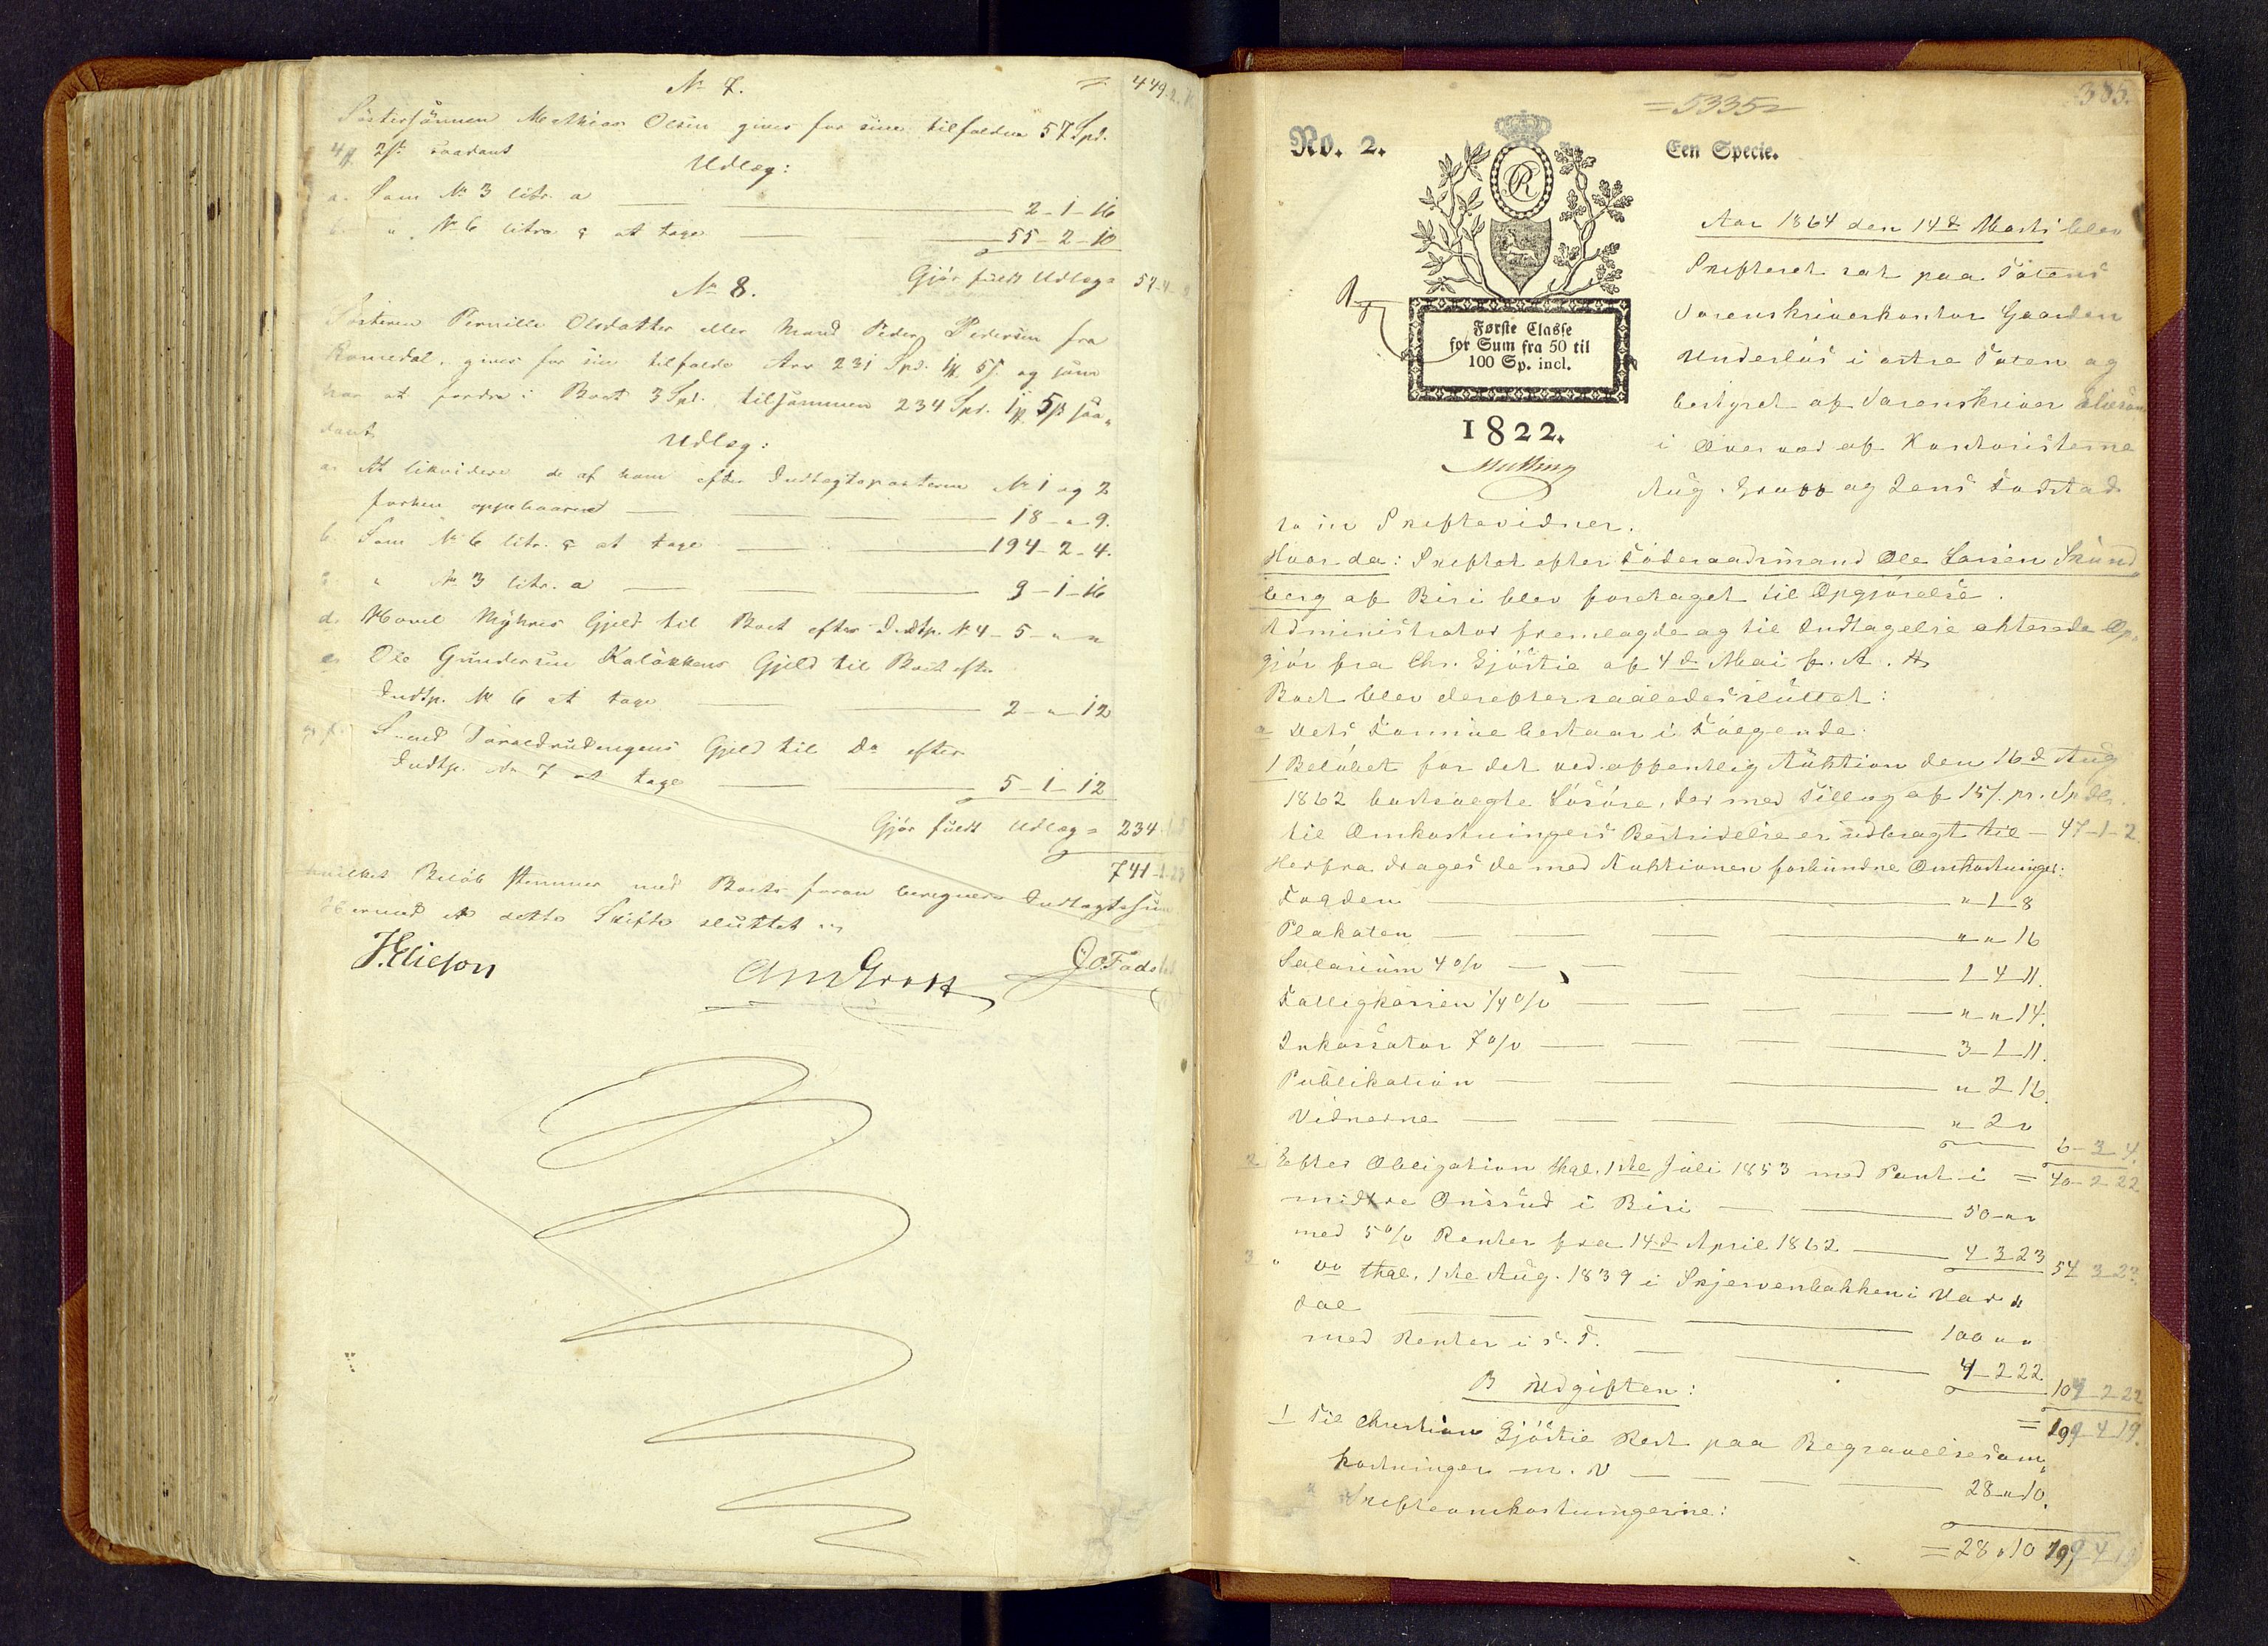 No 7.
= 449
Søstersønnen Mathias Olsen gives for sine tilfaldne 57 Spd.
4 ß saadant
Udlæg:
a. Som No 3 litr. a 2-1-16
" No 6 litra c at tage 55-2-10
Gjør fuldt Udlæg = 57-4-
No 8.
Søsteren Pernille Olsdatter eller Mand Peder Pedersen fra
Romedal, gives for sin tilfaldne Arv 231 Spd. 5 ß og som
har at fordre i Boet 3 Spd. tilsammen 234 Spd. 5 ß saa-
dant
Udlæg:
a. At likvidere de af ham efter Indtægtsposterne No 1 og 2
forhen oppebaarne 18 - " 9.
b. Som No 6 litr. c at tage 194-2-4.
" No 3 litr. a 9-1-16
d. Myhres Gjeld til Boet efter Indtp. No 4 - 5 - " "
e. Ole Gundersen Kaløkkens Gjeld til Boet efter
Indtp. No 6 at tage 2 - " 12
Gjeld til Do efter
Indtp. No 7 at tage 5-1-12
Gjør fuldt Udlæg = 234
741
hvilket Beløb stemmer med Boets foran beregnede Indtægtssum
Hermed er dette Skifte sluttet
J. Elieson
Am Gropp
J O Fodstad
385.
= 5335 =
No. 2.
Een Specie.
R
Første Classe
for Sum fra 50 til
100 Sp. incl.
1822.
Aar 1864 den 14d Marts blev
Skifteret sat paa Totens
Sorenskriverkontor Gaarden
Underlus i østre Toten og
bestyret af Sorenskriver Elieson
i Overvær af Kontoristerne
Aug. Gropp og Jens Fodstad
som Skiftevidner.
Hvor da: Skiftet efter Føderaadsmand Ole Larsen Skund
berg af Biri blev foretaget til Opgjørelse.
Administrator fremlagde og til Indtagelse akterede Op-
gjør fra Chr. Gjøstie af 4d Mai f. A.
Boet blev derefter saaledes sluttet:
a Dets Formue bestaar i Følgende:
1 Beløbet for det ved offentlig Auktion den 16d Aug
1862 bortsolgte Løsøre, der med Tillæg af 15 ß. pr. Spdlr.
til Omkostningers Bestridelse er udbragt til - 47-1-2
Herfra drages de med Auktionen forbundne Omkostninger:
Fogden " 1 8
Plakaten " " 16
Salarium 4 o/o 1 4 11.
Fattigkassen 1/4 o/o " " 14.
Inkassator 7 o/o 3-1-11.
Publikation " 2 16.
Vidnerne " 2 "
6-3-4.
2 Efter Obligation thgl. 1ste Juli 1853 med Pant i = 40-2-22
midtre Onsrud i Biri 50 " "
med 5 o/o Renter fra 14d April 1862 4 3 23
54 3 23
3 " Do thgl. 1ste Aug. 1839 i Skjervenbakken i Var-
dal 100 " "
med Renter i s. T. 4-2 22
104-2 22
B Udgiften:
= 199 4 19.
1 Til Christian Gjøstie Rest paa Begravelsesom-
kostninger m. V 28 " 10.
Skifteomkostningerne:
= 28 " 10 199 4 19